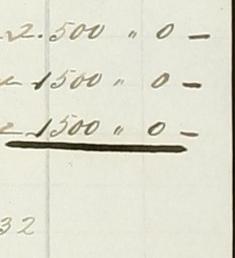 2.500 " 0 —
1500 " 0 —
1500 " 0 —
32